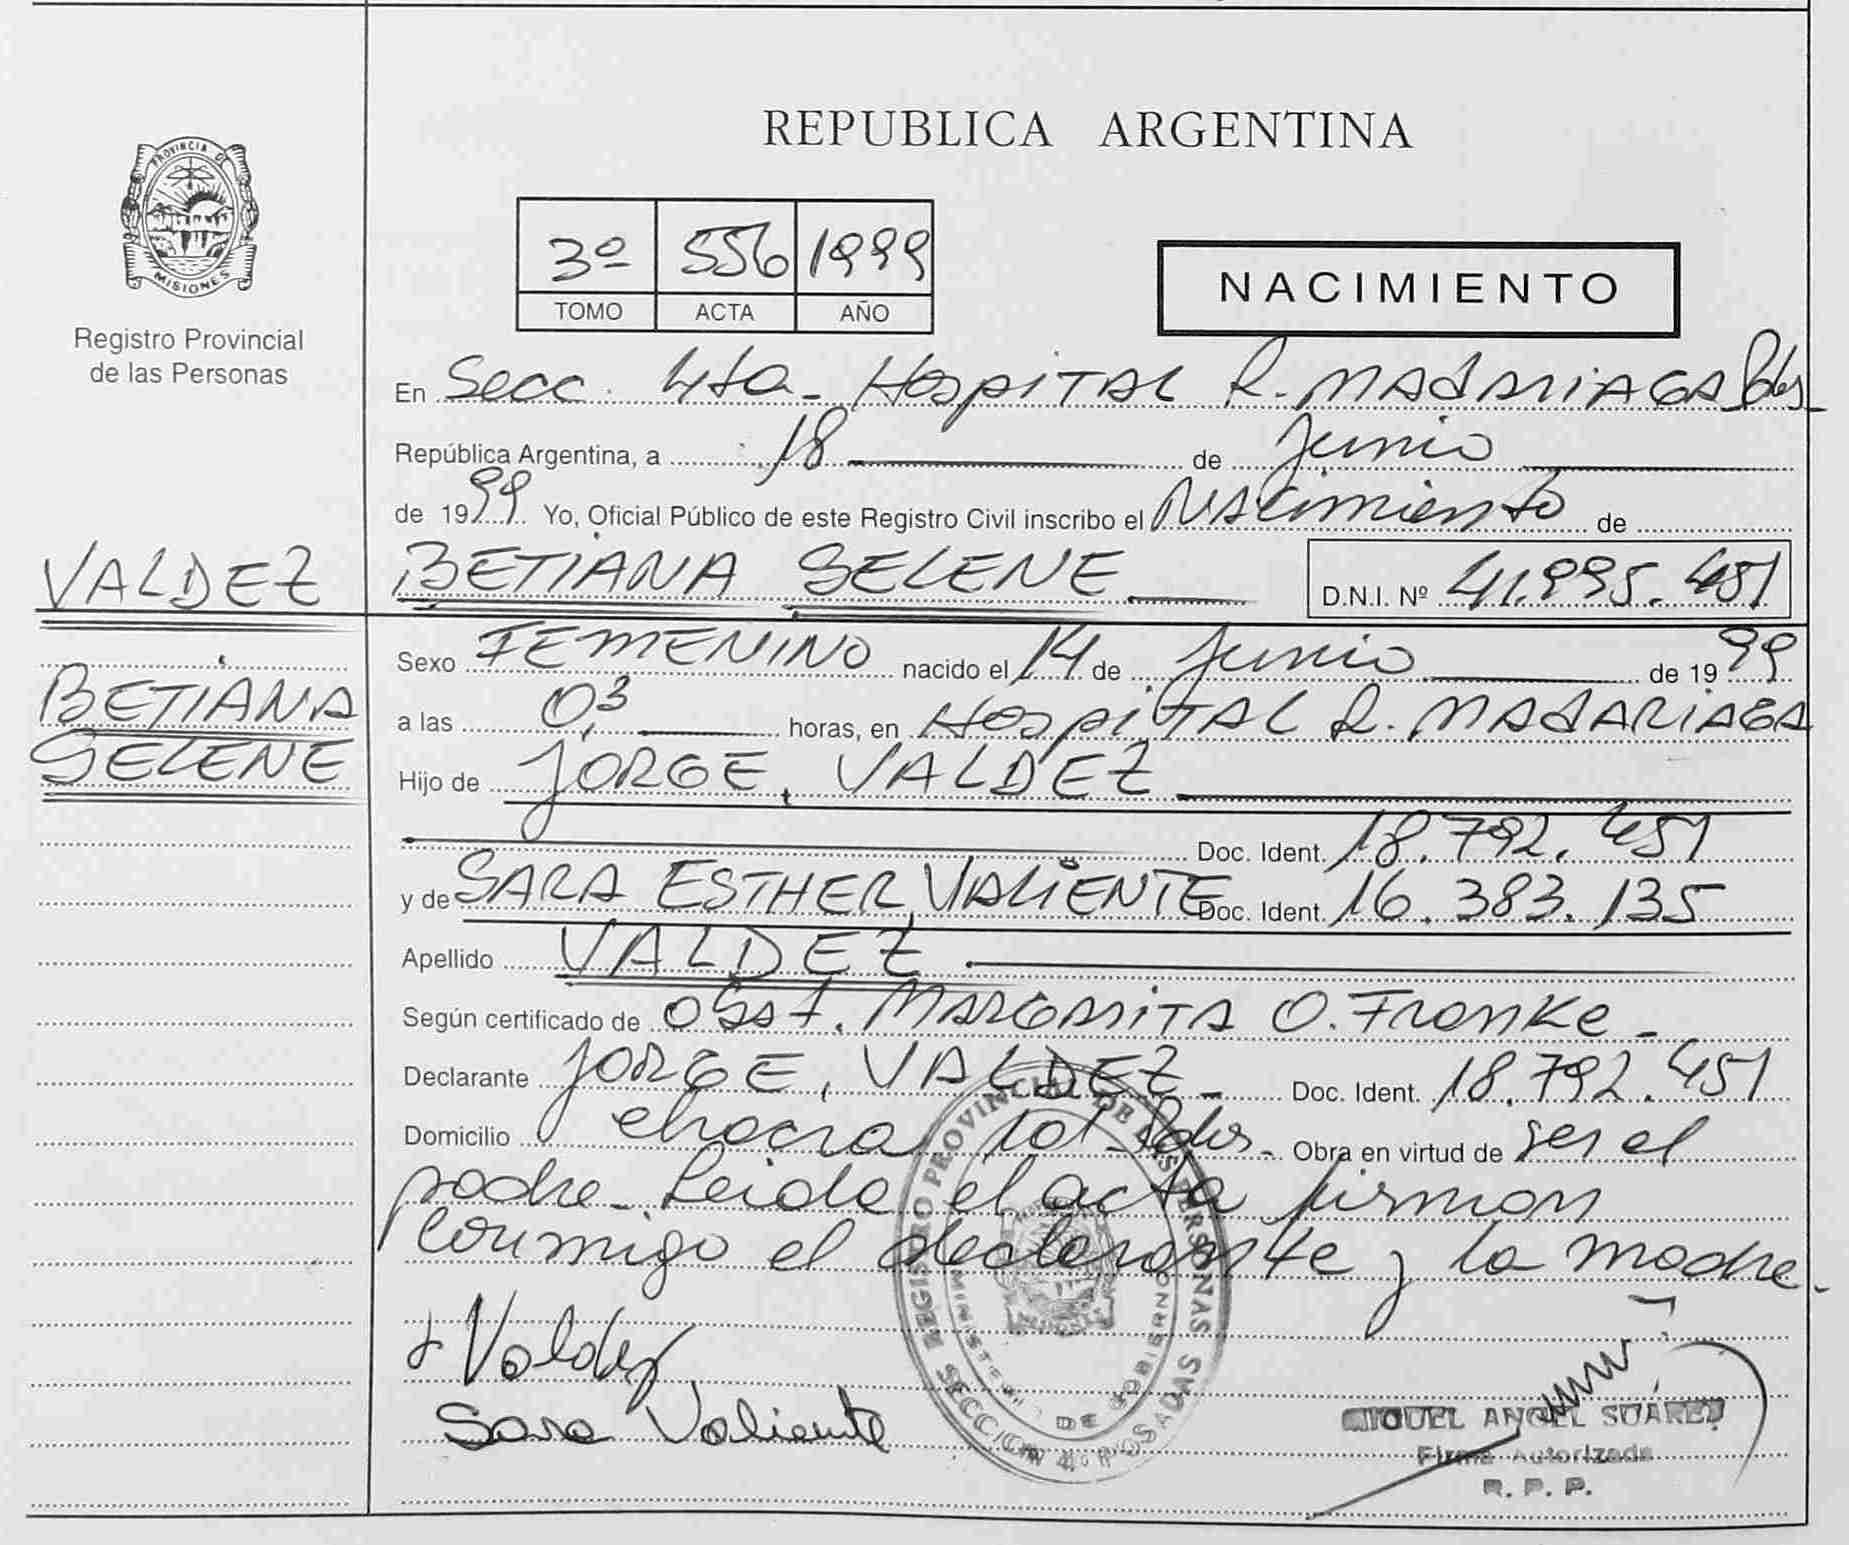 REPUBLICA ARGENTINA
PROVINCIA DE
MISIONES
Registro Provincial
de las Personas
3º 556 1999
TOMO ACTA AÑO
NACIMIENTO
En Secc. 4ta - Hospital R. MADARIAGA Pdas -
República Argentina, a 18 de Junio
de 1999 Yo, Oficial Público de este Registro Civil inscribo el Nacimiento de
VALDEZ BETIANA SELENE D.N.I. Nº 41.995.451
BETIANA
SELENE
Sexo FEMENINO nacido el 14 de Junio de 1999
a las 0,3 horas, en HOSPITAL R. MADARIAGA
Hijo de JORGE, VALDEZ
Doc. Ident. 18.792.451
y de SARA ESTHER, VALIENTE Doc. Ident. 16.383.135
Apellido VALDEZ
Según certificado de Obst. MARGARITA O. Franke -
Declarante JORGE, VALDEZ - Doc. Ident. 18.792.451
Domicilio chacra 101 Pdas - Obra en virtud de ser el
padre - Leida el acta firman
conmigo el declarante y la madre -
Valdez
Sara Valiente
REGISTRO PROVINCIAL DE LAS PERSONAS
MINISTERIO DE GOBIERNO
SECCION 4ª POSADAS
MIGUEL ANGEL SUÁREZ
Firma Autorizada
R. P. P.